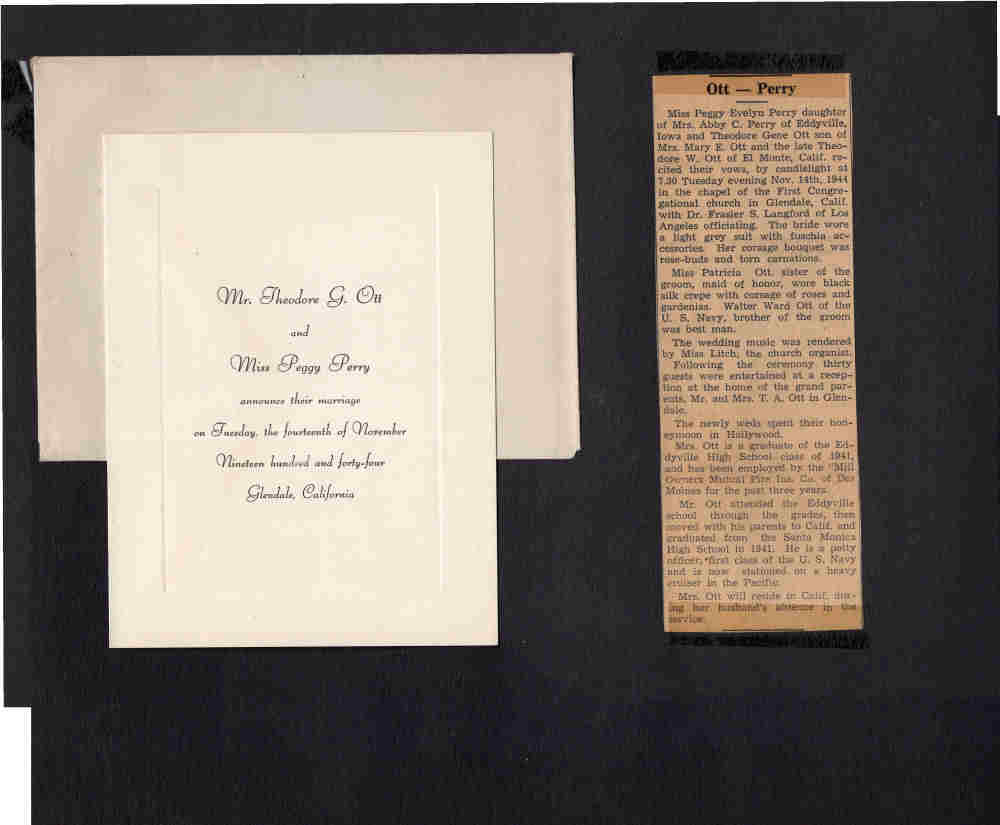 Mr. Theodore G. Ott
and
Miss Peggy Perry
announce their marriage
on Tuesday, the fourteenth of November
Nineteen hundred and forty-four
Glendale, California
Ott — Perry
Miss Peggy Evelyn Perry daughter
of Mrs. Abby C. Perry of Eddyville,
Iowa and Theodore Gene Ott son of
Mrs. Mary E. Ott and the late Theo-
dore W. Ott of El Monte, Calif. re-
cited their vows, by candlelight at
7.30 Tuesday evening Nov. 14th, 1944
in the chapel of the First Congre-
gational church in Glendale, Calif.
with Dr. Frasier S. Langford of Los
Angeles officiating. The bride wore
a light grey suit with fuschia ac-
cessories. Her corsage bouquet was
rose-buds and torn carnations.
Miss Patricia Ott, sister of the
groom, maid of honor, wore black
silk crepe with corsage of roses and
gardenias. Walter Ward Ott of the
U. S. Navy, brother of the groom
was best man.
The wedding music was rendered
by Miss Litch, the church organist.
Following the ceremony thirty
guests were entertained at a recep-
tion at the home of the grand par-
ents, Mr. and Mrs. T. A. Ott in Glen-
dale.
The newly weds spent their hon-
eymoon in Hollywood.
Mrs. Ott is a graduate of the Ed-
dyville High School class of 1941,
and has been employed by the "Mill
Owners Mutual Fire Ins. Co. of Des
Moines for the past three years.
Mr. Ott attended the Eddyville
school through the grades, then
moved with his parents to Calif. and
graduated from the Santa Monica
High School in 1941. He is a petty
officer, first class of the U. S. Navy
and is now stationed on a heavy
cruiser in the Pacific.
Mrs. Ott will reside in Calif. dur-
ing her husband's absence in the
service.